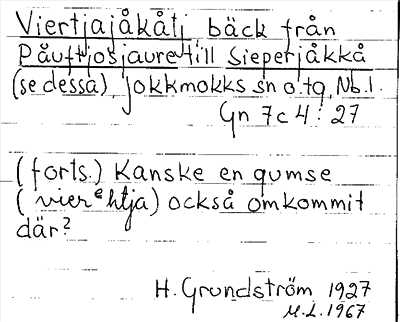 Viertjajåkåtj bäck från
Påuttjosjaure till Sieperjåkkå
(se dessa), Jokkmokks sn o. tg, Nb. l.
Gn 7c 4: 27
(forts.) Kanske en gumse
(vierᵉhtja) också omkommit
där?
H. Grundström 1927
M.L. 1967